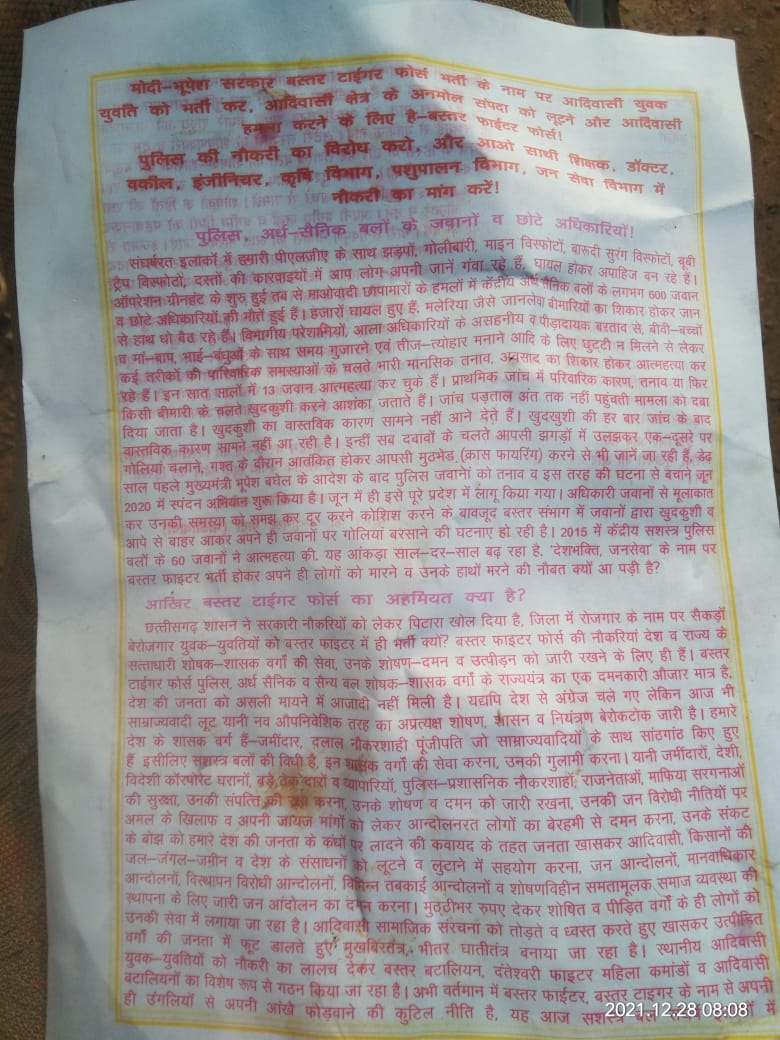 मोदी–भूपेश सरकार बस्तर टाईगर फोर्स भर्ती के नाम पर आदिवासी युवक
युवति को भर्ती कर, आदिवासी क्षेत्र के अनमोल संपदा को लूटने और आदिवासी
हमला करने के लिए है–बस्तर फाईटर फोर्स!
पुलिस की नौकरी का विरोध करो, और आओ साथी शिक्षक, डॉक्टर,
वकील, इंजीनियर, कृषि विभाग, पशुपालन विभाग, जन सेवा विभाग में
नौकरी का मांग करें!
पुलिस, अर्ध–सैनिक बलों के जवानों व छोटे अधिकारियों!
संघर्षरत इलाकों में हमारी पीएलजीए के साथ झड़पों, गोलीबारी, माइन विस्फोटों, बारूदी सुरंग विस्फोटों, बूबी
ट्रैप विस्फोटों, दस्तों की कारवाइयों में आप लोग अपनी जानें गंवा रहे हैं, घायल होकर अपाहिज बन रहे हैं।
ऑपरेशन ग्रीनहंट के शुरु हुई तब से माओवादी छापामारों के हमलों में केंद्रीय अर्धसैनिक बलों के लगभग 600 जवान
व छोटे अधिकारियों की मौतें हुई हैं। हजारों घायल हुए हैं. मलेरिया जैसे जानलेवा बीमारियों का शिकार होकर जान
से हाथ धो बैठ रहे हैं। विभागीय परेशामियों, आला अधिकारियों के असहनीय व पीड़ादायक बरताव से, बीवी–बच्चों
व मां–बाप, भाई–बंधुओं के साथ समय गुजारने एवं तीज–त्योहार मनाने आदि के लिए छुटटी न मिलने से लेकर
कई तरीकों की पारिवारिक समस्याओं के चलते भारी मानसिक तनाव, अवसाद का शिकार होकर आत्महत्या कर
रहे हैं। इन सात सालों में 13 जवान आत्महत्या कर चुके हैं। प्राथमिक जांच में परिवारिक कारण, तनाव या फिर
किसी बीमारी के चलते खुदकुशी करने आशंका जताते हैं। जांच पड़ताल अंत तक नहीं पहुंचती मामला को दबा
दिया जाता है। खुदकुशी का वास्तविक कारण सामने नहीं आने देते हैं। खुदखुशी की हर बार जांच के बाद
वास्तविक कारण सामने नहीं आ रही है। इन्हीं सब दबावों के चलते आपसी झगड़ों में उलझकर एक–दूसरे पर
गोलियां चलाने, गश्त के दौरान आतंकित होकर आपसी मुठभेड़ (क्रास फायरिंग) करने से भी जानें जा रही हैं, डेढ़
साल पहले मुख्यमंत्री भूपेश बघेल के आदेश के बाद पुलिस जवानों को तनाव व इस तरह की घटना से बचाने जून
2020 में स्पंदन अभियान शुरू किया है। जून में ही इसे पूरे प्रदेश में लागू किया गया। अधिकारी जवानों से मूलाकात
कर उनकी समस्या को समझ कर दूर करने कोशिश करने के बावजूद बस्तर संभाग में जवानों द्वारा खुदकुशी व
आपे से बाहर आकर अपने ही जवानों पर गोलियां बरसाने की घटनाए हो रही है। 2015 में केंद्रीय सशस्त्र पुलिस
बलों के 60 जवानों ने आत्महत्या की. यह आंकड़ा साल–दर–साल बढ़ रहा है. 'देशभक्ति, जनसेवा' के नाम पर
बस्तर फाइटर भर्ती होकर अपने ही लोगों को मारने व उनके हाथों मरने की नौबत क्यों आ पड़ी है?
आखिर बस्तर टाईगर फोर्स का अहमियत क्या है?
छत्तीसगढ़ शासन ने सरकारी नौकरियों को लेकर पिटारा खोल दिया है, जिला में रोजगार के नाम पर सैकड़ों
बेरोजगार युवक–युवतियों को बस्तर फाइटर में ही भर्ती क्यों? बस्तर फाइटर फोर्स की नौकरियां देश व राज्य के
सत्ताधारी शोषक–शासक वर्गों की सेवा, उनके शोषण–दमन व उत्पीड़न को जारी रखने के लिए ही हैं। बस्तर
टाईगर फोर्स पुलिस, अर्ध सैनिक व सैन्य बल शोषक–शासक वर्गों के राज्ययंत्र का एक दमनकारी औजार मात्र है.
देश की जनता को असली मायने में आजादी नहीं मिली है। यद्यपि देश से अंग्रेज चले गए लेकिन आज भी
साम्राज्यवादी लूट यानी नव औपनिवेशिक तरह का अप्रत्यक्ष शोषण, शासन व नियंत्रण बेरोकटोक जारी है। हमारे
देश के शासक वर्ग हैं–जमींदार, दलाल नौकरशाही पूंजीपति जो साम्राज्यवादियों के साथ सांठगांठ किए हुए
हैं इसीलिए सशस्त्र बलों की विधी है, इन शासक वर्गों की सेवा करना, उनकी गुलामी करना। यानी जमींदारों, देशी,
विदेशी कॉरपोरेट घरानों, बड़े ठेकेदारों व व्यापारियों, पुलिस–प्रशासनिक नौकरशाहों, राजनेताओं, माफिया सरगनाओं
की सुरक्षा, उनकी संपत्ति की रक्षा करना, उनके शोषण व दमन को जारी रखना, उनकी जन विरोधी नीतियों पर
अमल के खिलाफ व अपनी जायज मांगों को लेकर आन्दोलनरत लोगों का बेरहमी से दमन करना, उनके संकट
के बोझ को हमारे देश की जनता के कंधों पर लादने की कवायद के तहत जनता खासकर आदिवासी, किसानों की
जल–जंगल–जमीन व देश के संसाधनों को लूटने व लुटाने में सहयोग करना, जन आन्दोलनों, मानवाधिकार
आन्दोलनों, विस्थापन विरोधी आन्दोलनों, विभिन्न तबकाई आन्दोलनों व शोषणविहीन समतामूलक समाज व्यवस्था की
स्थापना के लिए जारी जन आंदोलन का दमन करना। मुठठीभर रुपए देकर शोषित व पीड़ित वर्गों के ही लोगों को
उनकी सेवा में लगाया जा रहा है। आदिवासी सामाजिक संरचना को तोड़ते व ध्वस्त करते हुए खासकर उत्पीड़ित
वर्गों की जनता में फूट डालते हुए मुखबिरतंत्र, भीतर घातीतंत्र बनाया जा रहा है। स्थानीय आदिवासी
युवक–युवतियों को नौकरी का लालच देकर बस्तर बटालियन, दंतेश्वरी फाइटर महिला कमांडों व आदिवासी
बटालियनों का विशेष रूप से गठन किया जा रहा है। अभी वर्तमान में बस्तर फाईटर, बस्तर टाइगर के नाम से अपनी
ही उंगलियों से अपनी आंखे फोड़वाने की कुटिल नीति है, यह आज सशस्त्र में
2021.12.28 08:08